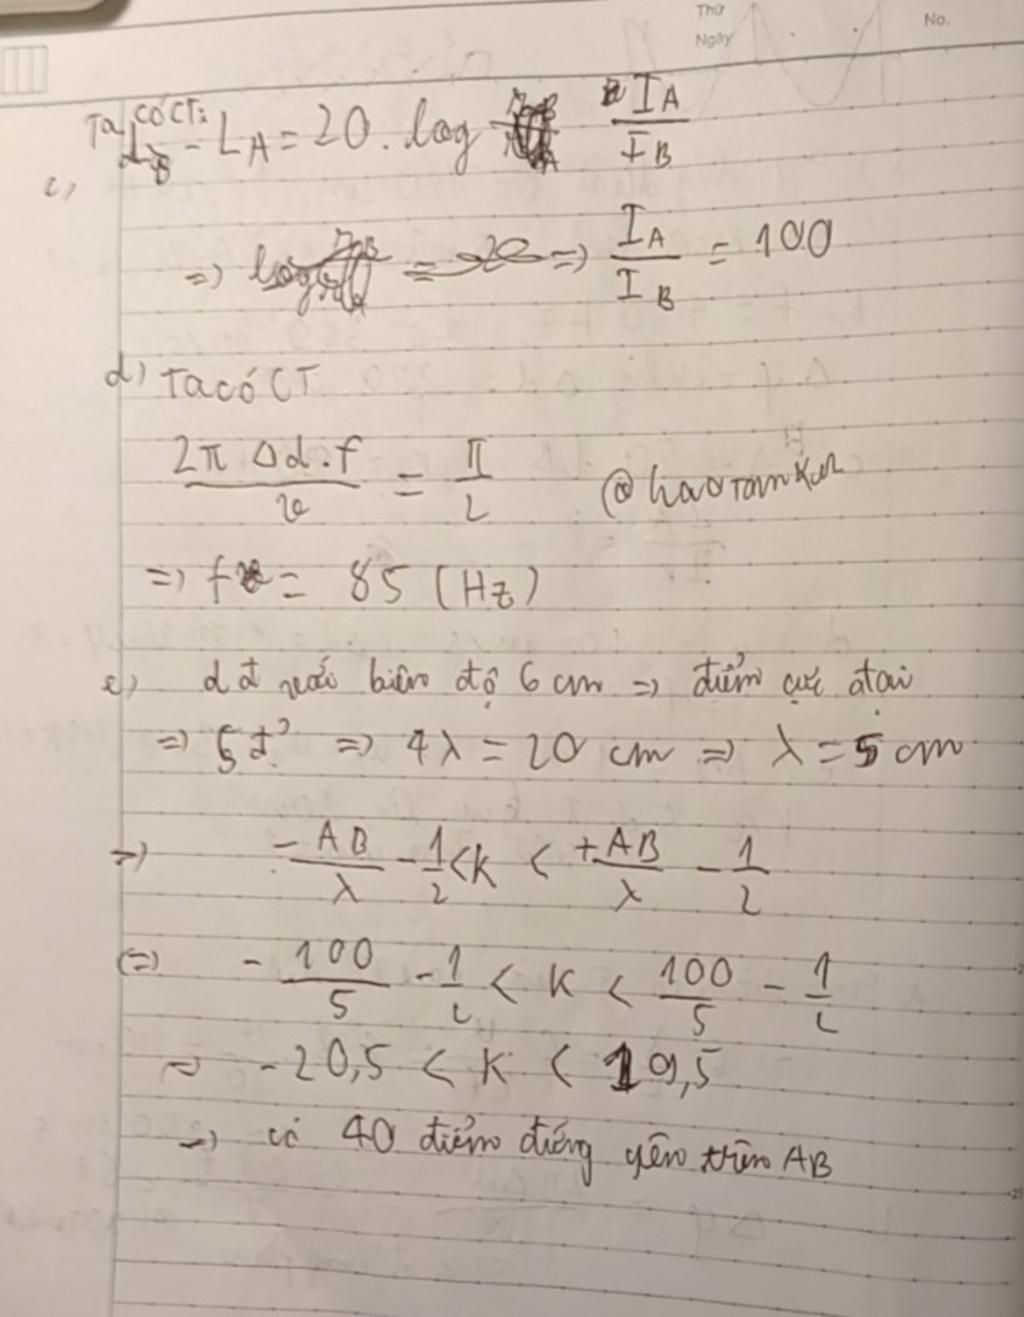 Thứ
Ngày
No.
Ta có CT:
c) L_B - L_A = 20 . log I_A / I_B
=> => I_A / I_B = 100
d) Ta có CT
2π Δd . f / v = π / 2
=> f = 85 (Hz)
e) biên độ 6 cm => điểm cực đại
=> 5 đ² => 4λ = 20 cm => λ = 5 cm
=> - AB / λ - 1/2 < K < + AB / λ - 1/2
(=) - 100 / 5 - 1/2 < K < 100 / 5 - 1/2
=> - 20,5 < K < 19,5
=> có 40 điểm đứng yên trên AB